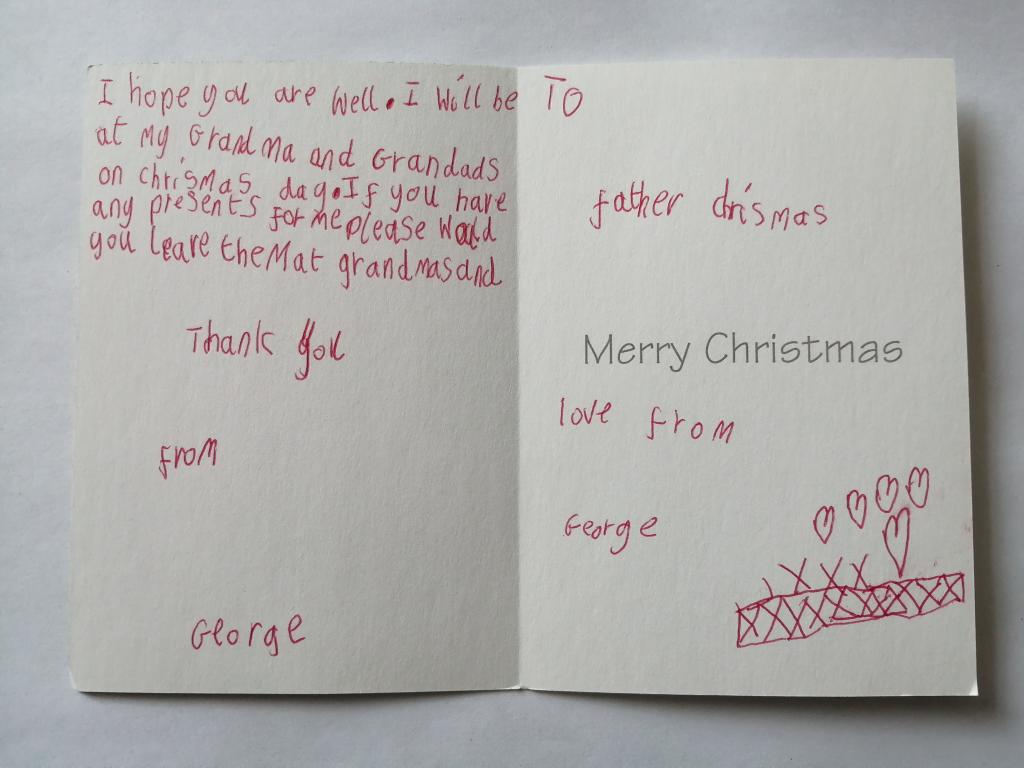 I hope you are well. I will be
at my Grandma and Grandads
on chrismas day. If you have
any presents for me please Would
you leave them at grandmas and
Thank you
from
George
To
father chrismas
Merry Christmas
love from
George